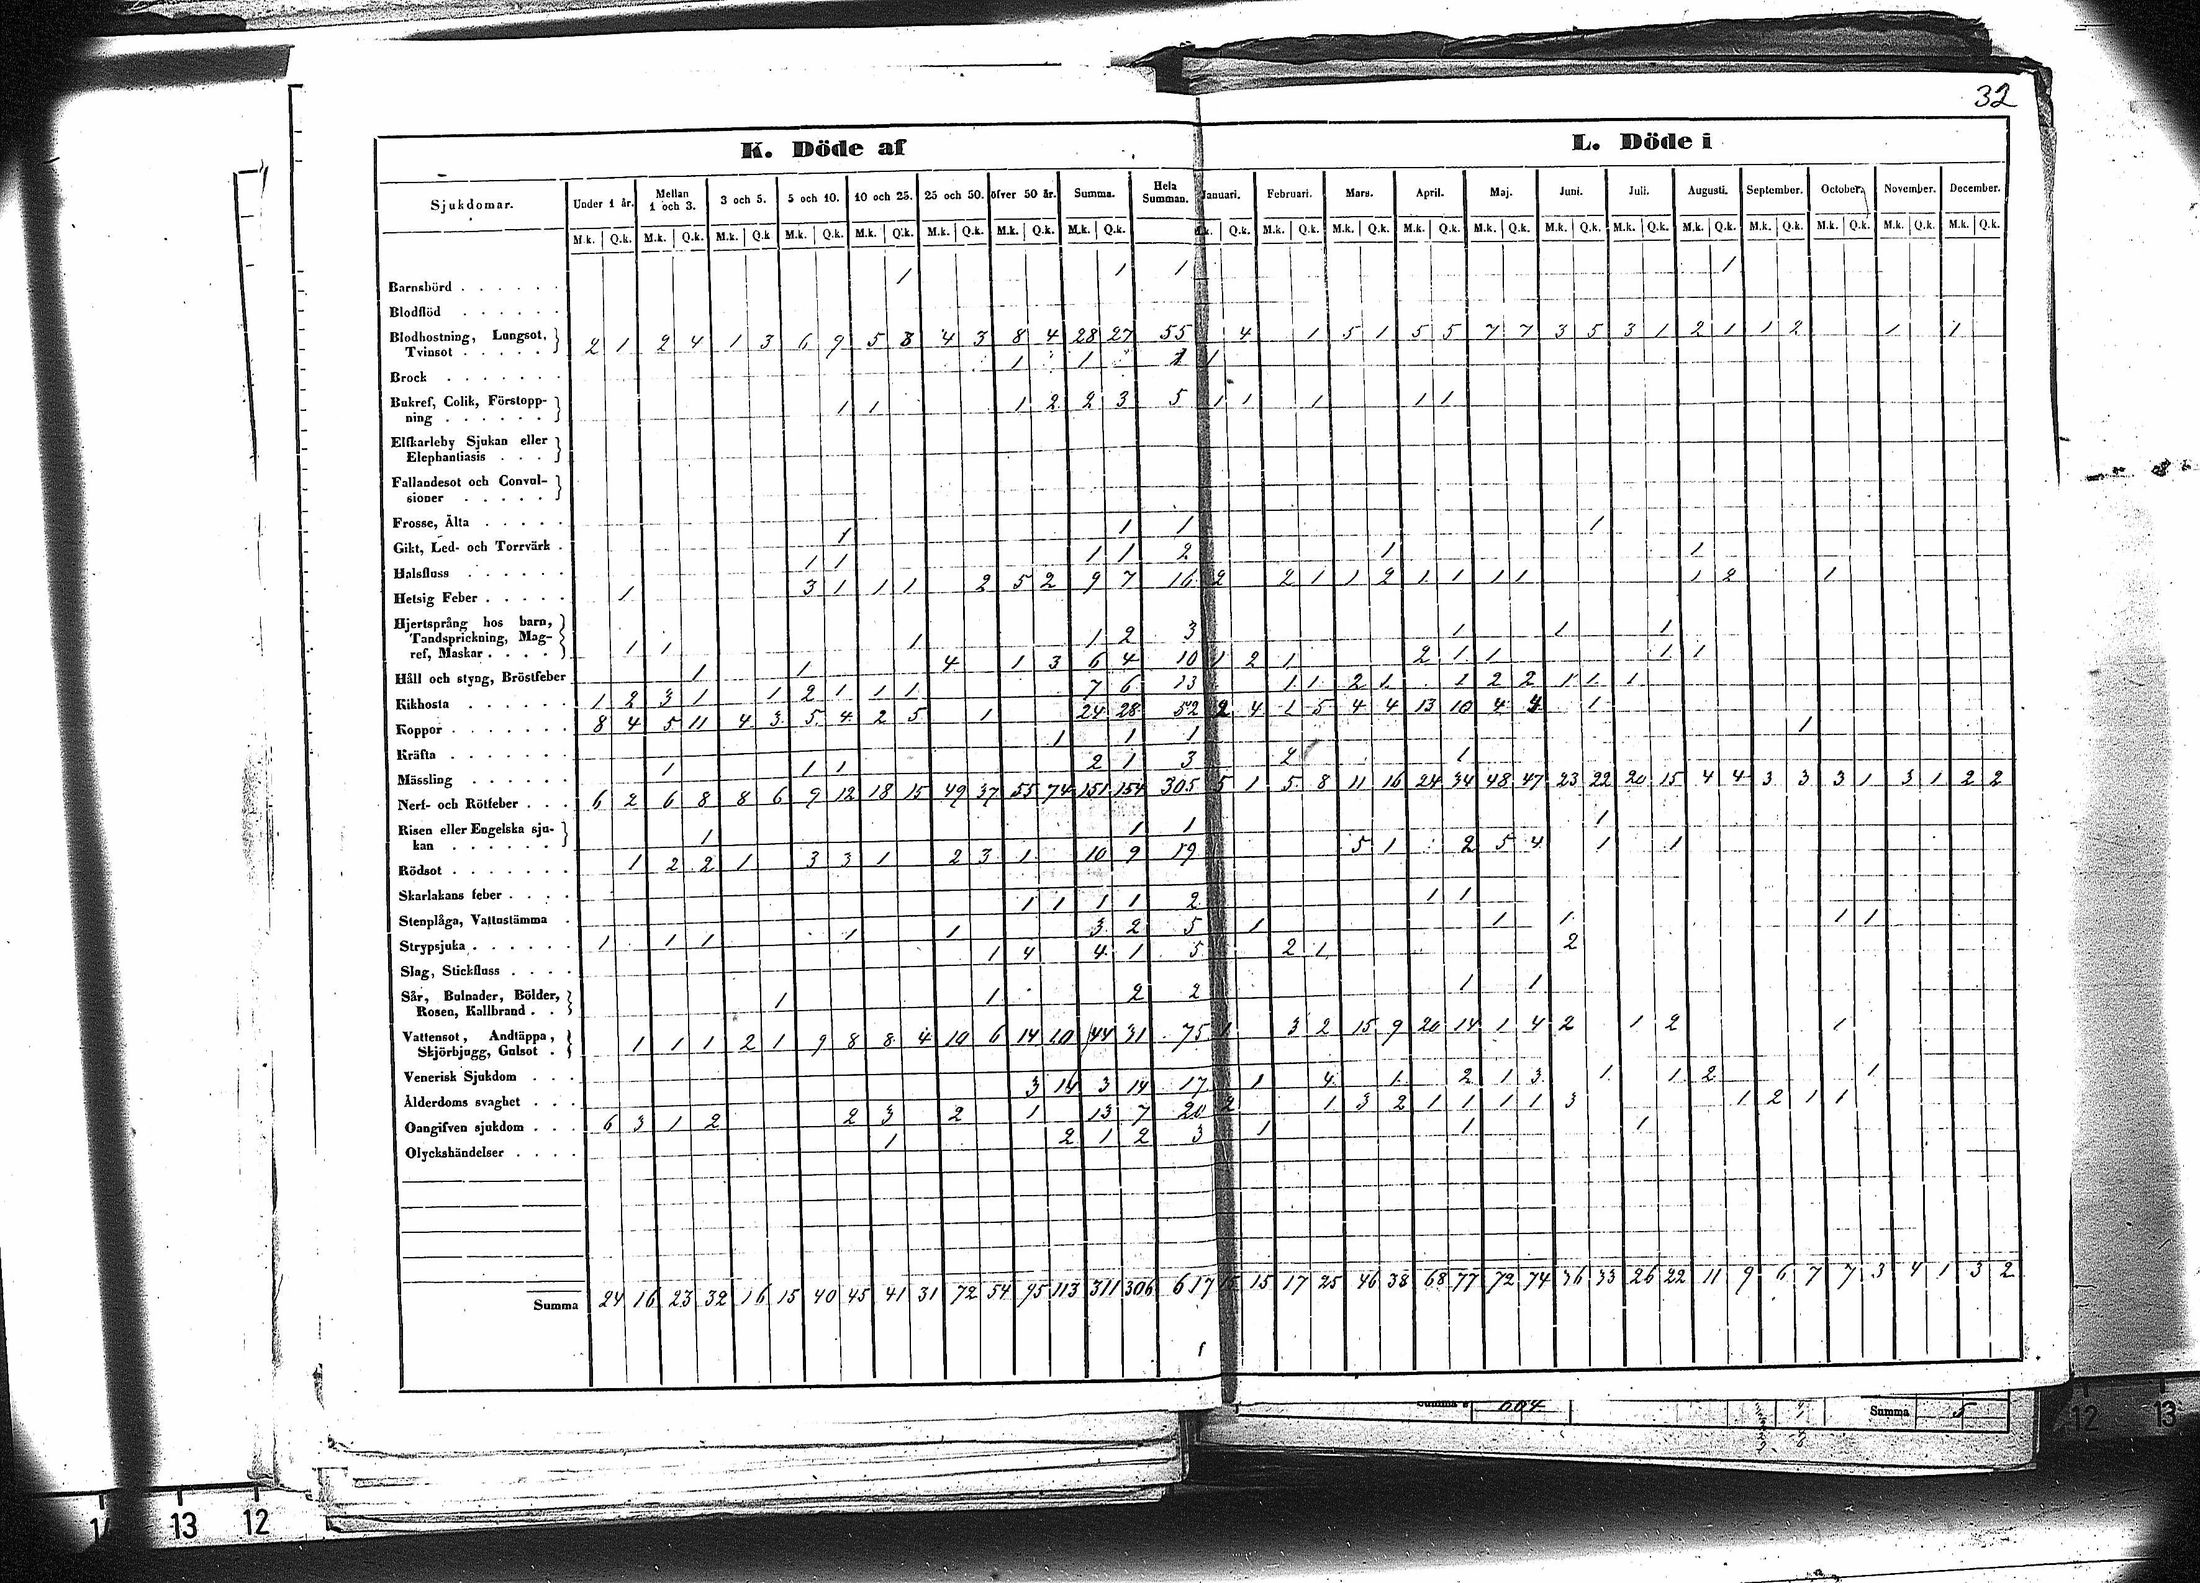 32
K. Döde af
L. Döde i
Sjukdomar. Under 1 år. Mellan 1 och 3. 3 och 5. 5 och 10. 10 och 25. 25 och 50. öfver 50 år. Summa. Hela Summan. Januari. Februari. Mars. April. Maj. Juni. Juli. Augusti. September. October. November. December.
M.k. Q.k. M.k. Q.k. M.k. Q.k M.k. Q.k. M.k. Q.k. M.k. Q.k. M.k. Q.k. M.k. Q.k. M.k. Q.k. M.k. Q.k. M.k. Q.k. M.k. Q.k. M.k. Q.k. M.k. Q.k. M.k. Q.k. M.k. Q.k. M.k. Q.k. M.k. Q.k. M.k. Q.k. M.k. Q.k.
Barnsbörd 1 1 1 1
Blodflöd
Blodhostning, Lungsot,
Tvinsot 2 1 2 4 1 3 6 9 5 3 4 3 8 4 28 27 55 4 1 5 1 5 5 7 7 3 5 3 1 2 1 1 2 1 1
Brock 1 1 1 1
Bukref, Colik, Förstopp-
ning 1 1 1 2 2 3 5 1 1 1 1 1
Elfkarleby Sjukan eller
Elephantiasis
Fallandesot och Convul-
sioner
Frosse, Älta
Gikt, Led- och Torrvärk 1 1 1 1
Halsfluss 1 1 1 1 2 1 1
Hetsig Feber 1 3 1 1 1 2 5 2 9 7 16 2 2 1 1 2 1 1 1 1 1 2 1
Hjertsprång hos barn,
Tandsprickning, Mag-
ref, Maskar 1 1 1 1 2 3 1 1 1
Håll och styng, Bröstfeber 1 1 4 1 3 6 4 10 1 2 1 2 1 1 1 1
Kikhosta 1 2 3 1 1 2 1 1 1 7 6 13 1 1 2 1 1 2 2 1 1 1
Koppor 8 4 5 11 4 3 5 4 2 5 1 24 28 52 2 4 1 5 4 4 13 10 4 4 1
Kräfta 1 1 1 1
Mässling 1 1 1 2 1 3 2 1
Nerf- och Rötfeber 6 2 6 8 8 6 9 12 18 15 49 37 55 74 151 154 305 5 1 5 8 11 16 24 34 48 47 23 22 20 15 4 4 3 3 3 1 3 1 2 2
Risen eller Engelska sju-
kan 1 1 1 1
Rödsot 1 2 2 1 3 3 1 2 3 1 10 9 19 5 1 2 5 4 1 1
Skarlakans feber
Stenplåga, Vattustämma 1 1 1 1 2 1 1
Strypsjuka 1 1 1 1 1 3 2 5 1 1 1 1 1
Slag, Stickfluss 1 4 4 1 5 2 1 2
Sår, Bulnader, Bölder,
Rosen, Kallbrand 1 1 2 2 1 1
Vattensot, Andtäppa,
Skjörbjugg, Gulsot 1 1 1 2 1 9 8 8 4 10 6 14 10 44 31 75 1 3 2 15 9 20 14 1 4 2 1 2 1
Venerisk Sjukdom
Ålderdoms svaghet 3 14 3 14 17 1 4 1 2 1 3 1 1 2 1
Oangifven sjukdom 6 3 1 2 2 3 2 1 13 7 20 2 1 3 2 1 1 1 1 3 1 2 1 1
Olyckshändelser 1 2 1 2 3 1 1 1
Summa 24 16 23 32 16 15 40 45 41 31 72 54 95 113 311 306 617 15 15 17 25 46 38 68 77 72 74 36 33 26 22 11 9 6 7 7 3 4 1 3 2
Summa 5
13 12
12 13